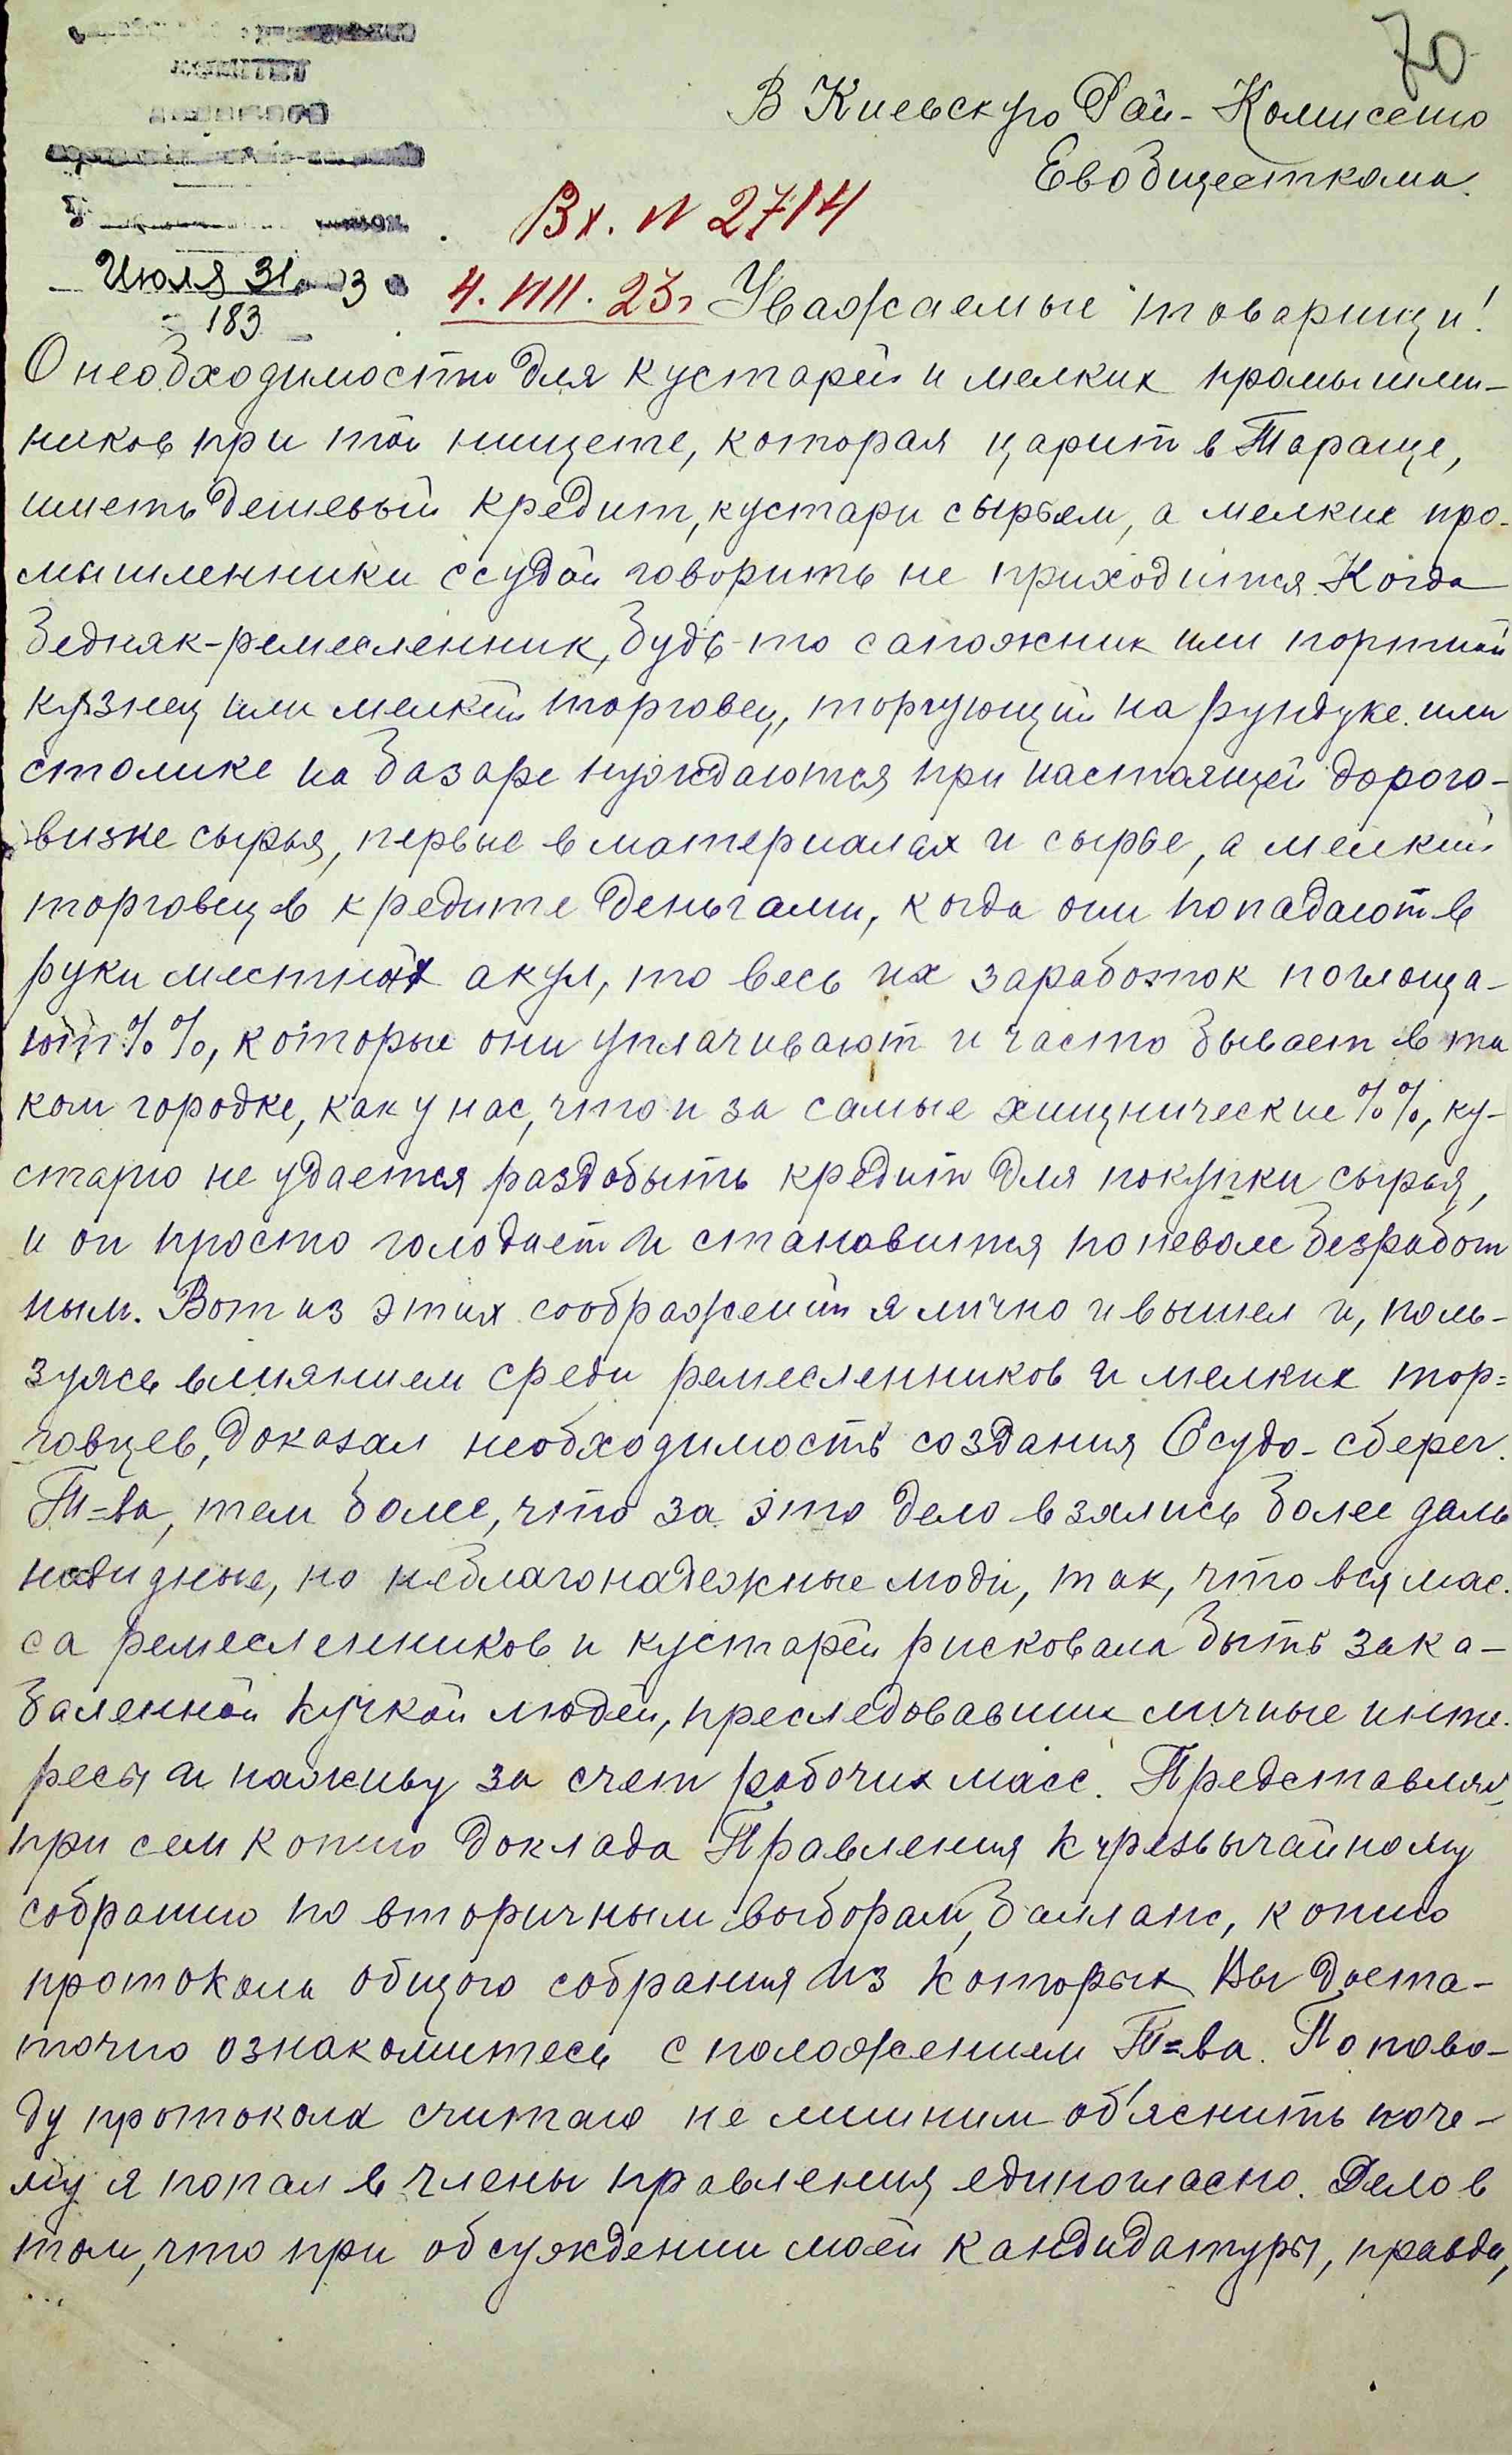 70
В Киевскую Рай-Комиссию
Евобщесткома.
Вх. N 2714
Июля 31 3
183
4. VIII. 23г
Уважаемые товарищи!
О необходимости для кустарей и мелких промышлен-
ников при той нищете, которая царит в Тараще,
иметь дешевый кредит, кустари сырьем, а мелкие про-
мышленники ссудой говорить не приходится. Когда
бедняк-ремесленник, будь-то сапожник или портной
кузнец или мелкий торговец, торгующий на рундуке или
столике на базаре нуждаются при настоящей дорого-
визне сырья, первые в материалах и сырье, а мелкий
торговец в кредите деньгами, когда они попадают в
руки местных акул, то весь их заработок поглоща-
ют %%, которые они уплачивают и часто бывает в та
ком городке, как у нас, что и за самые хищнические %%, ку-
старю не удается раздобыть кредит для покупки сырья,
и он просто голодает и становится поневоле безработ
ным. Вот из этих соображений я лично и вышел и, поль-
зуясь влиянием среди ремесленников и мелких тор=
говцев, доказал необходимость создания Ссудо-сберег.
Т=ва, тем более, что за это дело взялись более даль
новидные, но неблагонадежные люди, так, что вся мас.
са ремесленников и кустарей рисковала быть зака-
баленной кучкой людей, преследовавших личные инте.
ресы и наживу за счет рабочих масс. Представляя,
при сем копию доклада Правления к чрезвычайному
собранию по вторичным выборам, балланс, копию
протокола общого собрания из которых Вы доста-
точно ознакомитесь с положением Т=ва. По пово-
ду протокола считаю не лишним об'яснить поче-
му я попал в члены правления единогласно. Дело в
том, что при обсуждении моей кандидатуры, правда,